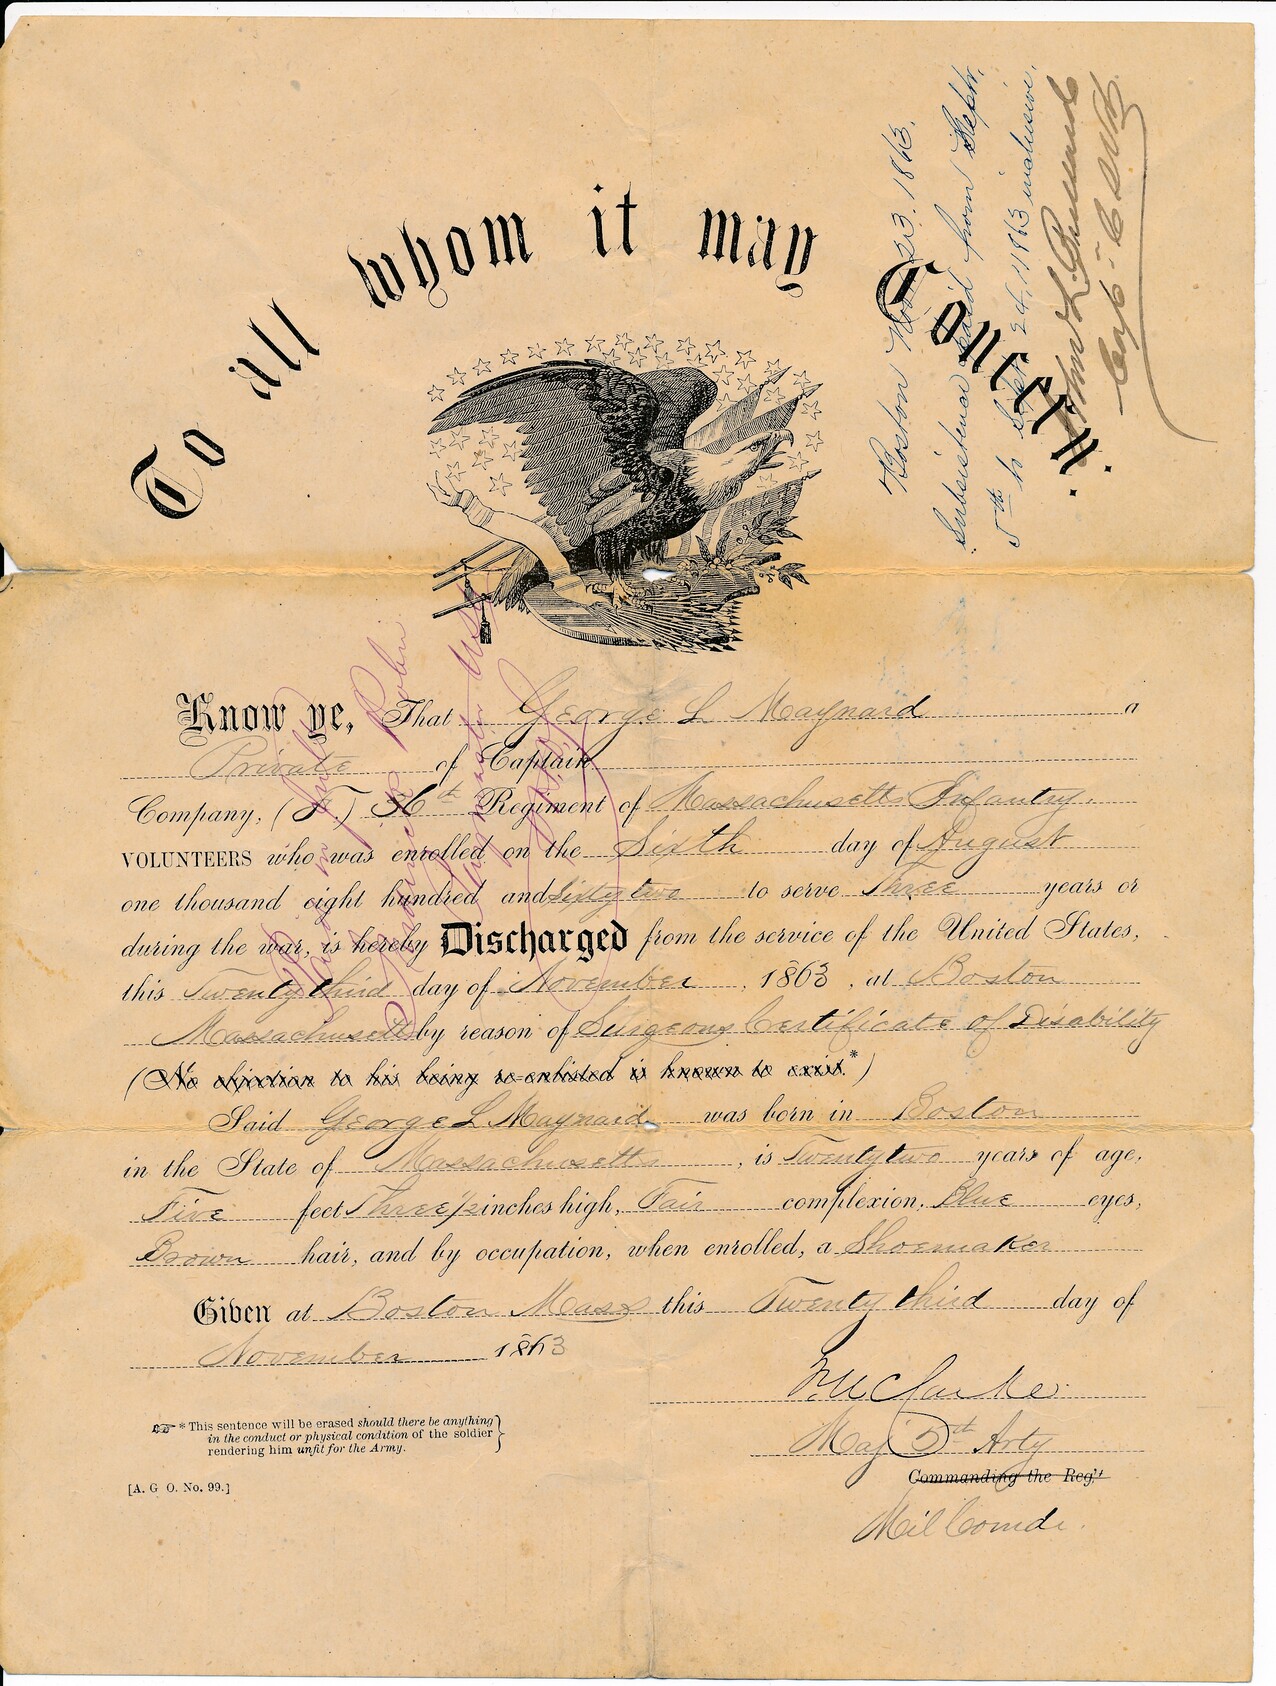 To all whom it may Concern.
Boston Nov 23. 1863.
Subsistence paid from Septr.
5th to Sept 24, 1863 inclusive.
John L
Capt
Know ye, That George L Maynard a
Private of Captain
Company, (F.) Regiment of Massachusetts Infantry.
VOLUNTEERS who was enrolled on the Sixth day of August
one thousand eight hundred and Sixty two to serve Three years or
during the war, is hereby Discharged from the service of the United States,
this Twenty third day of November, 1863, at Boston
Massachusetts by reason of Surgeons Certificate of Disability
(No objection to his being re-enlisted is known to exist.*)
Said George L Maynard was born in Boston
in the State of Massachusetts, is Twenty two years of age,
Five feet Three ½ inches high, Fair complexion, Blue eyes,
Brown hair, and by occupation, when enrolled, a Shoemaker
Given at Boston Mass this Twenty third day of
November 1863
Clarke
Maj 5th Arty
Commanding the Reg't
Mil Comdr.
☞ * This sentence will be erased should there be anything
in the conduct or physical condition of the soldier
rendering him unfit for the Army.
[A. G O. No. 99.]